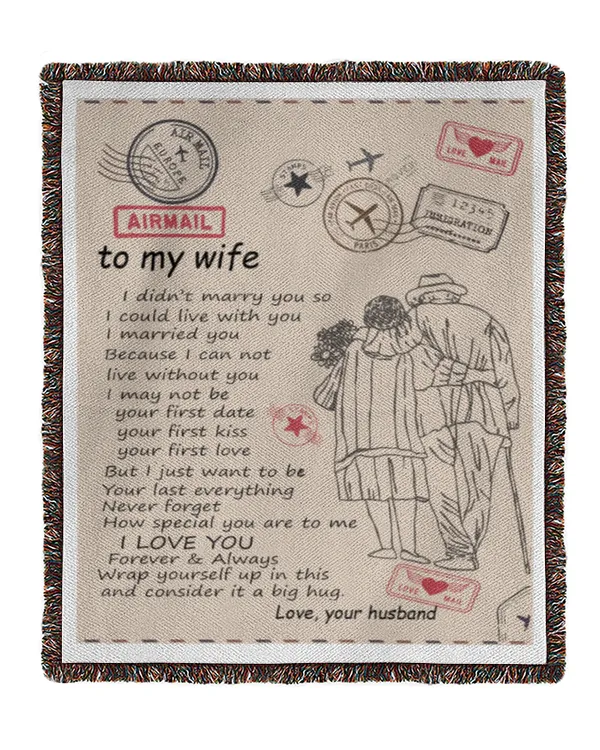 AIR MAIL
EUROPE
AIRMAIL
STAMPS
PARIS
12345
IMMIGRATION
LOVE MAIL
to my wife
I didn't marry you so
I could live with you
I married you
Because I can not
live without you
I may not be
your first date
your first kiss
your first love
But I just want to be
Your last everything
Never forget
How special you are to me
I LOVE YOU
Forever & Always
Wrap yourself up in this
and consider it a big hug.
Love, your husband
LOVE MAIL